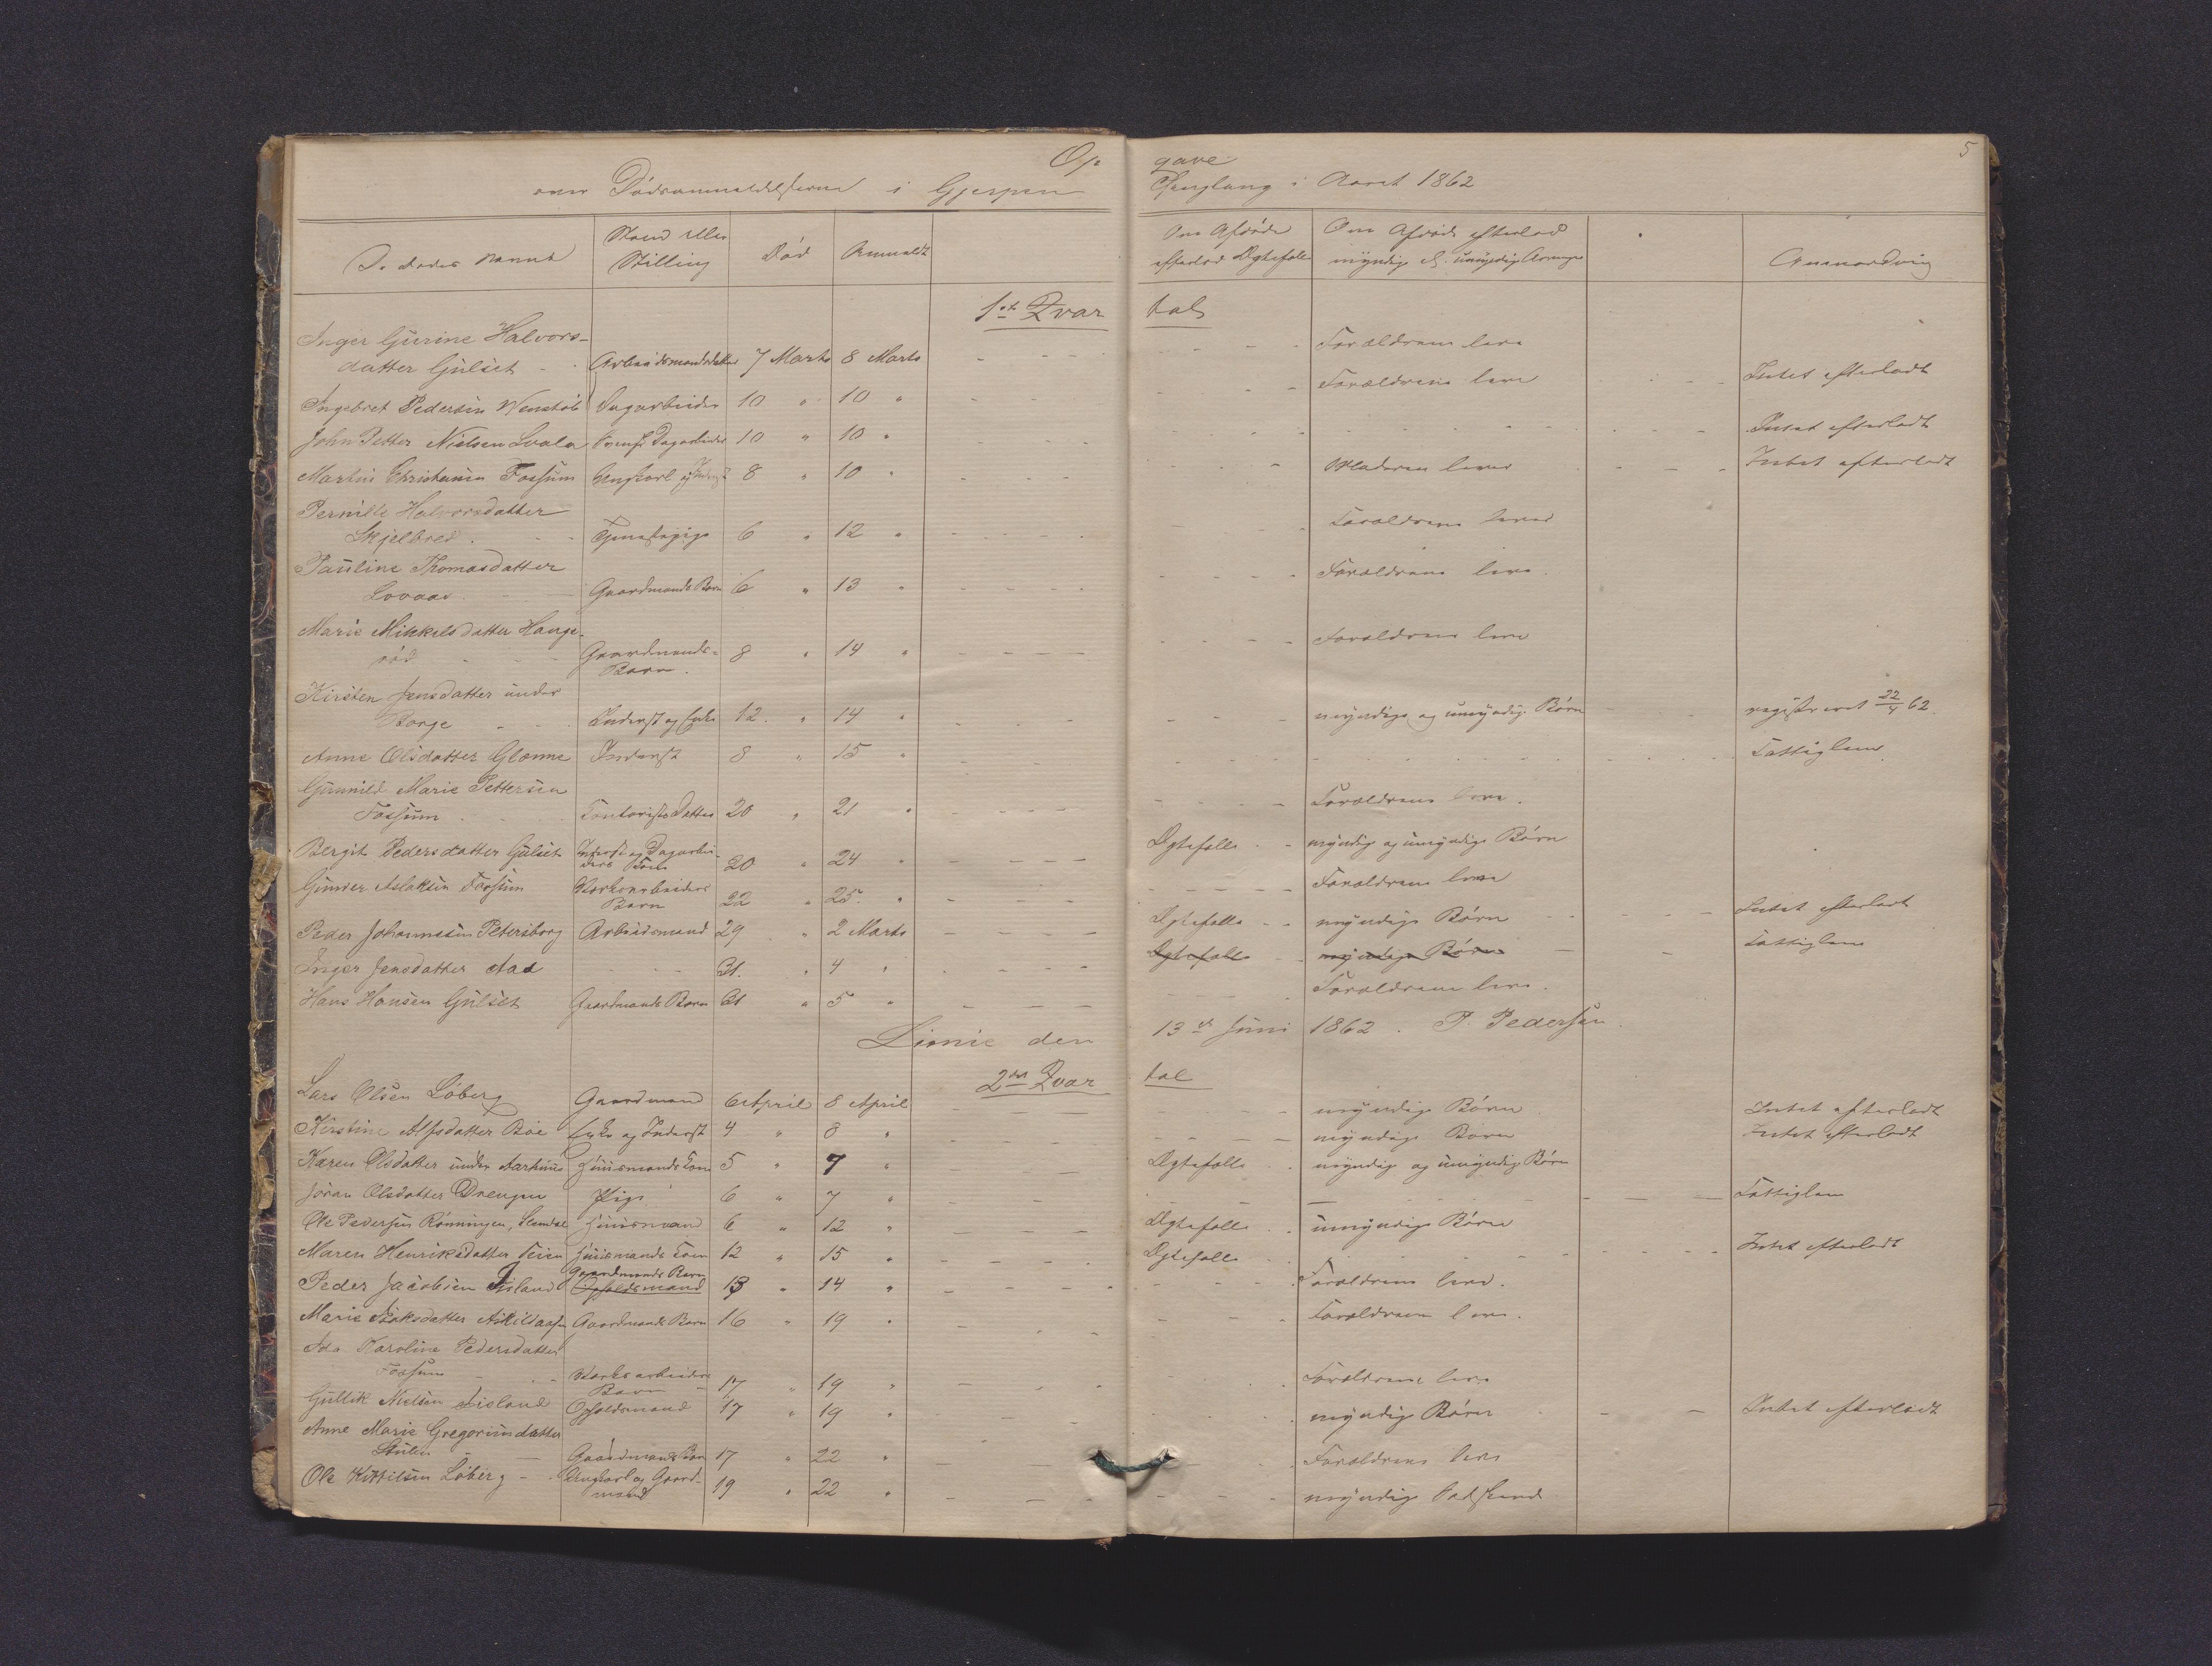 Op gave 5
over Dødsanmeldelserne i Gjerpen Thinglaug i Aaret 1862
De dødes Navne Stand eller Stilling Død Anmeldt Om Afdøde efterlod Ægtefælle Om Afdøde efterlod myndige el. umyndige Arvinger Anmærkning
1ste Qvar tal
Inger Gurine Halvors-
datter Gulset Arbeidsmandsdatter 7 Marts 8 Marts Forældrene leve
Ingebret Pedersen Wenstøb Dagarbeider 10 " 10 " Forældrene leve Intet efterladt
John Petter Nielsen Dagarbeider 10 " 10 " Intet efterladt
Martin Christensen Fossum Ungkarl 8 " 10 " Moderen lever Intet efterladt
Pernille Halvorsdatter
Skjelbred Tjenestepige 6 " 12 " Forældrene lever
Pauline Thomasdatter
Lovaas Gaardmands Barn 6 " 13 " Forældrene leve.
Marie Mikkelsdatter Hauge-
rød Gaardmands- 8 " 14 " Forældrene leve
Barn.
Kirsten Jensdatter under
Borge Inderst og Enke 12 " 14 " myndige og umyndige Børn registreret 22/4 62
Anne Olsdatter Glenne Inderst 8 " 15 " Fattiglem
Gunnild Marie Pettersen
Fossum Datter 20 " 21 " Forældrene leve.
Bergit Pedersdatter Gulset Inderst og Dagarbei- 20 " 24 " Ægtefælle myndige og umyndige Børn
ders Kone
Gunder Aslaksen Fossum Værksarbeiders 22 " 25 " Forældrene leve
Barn
Peder Johannesen Petersborg Arbeidsmand 29 " 2 Marts Ægtefælle myndige Børn Intet efterladt
Inger Jensdatter Aas 31. " 4 " Ægtefælle myndige Børn Fattiglem
Hans Hansen Gulset Gaardmands Barn 31 " 5 " Forældrene leve.
den 13de Juni 1862. P. Pedersen
2det Qvar tal
Lars Olsen Løberg Gaardmand 6 April 8 April myndige Børn Intet efterladt
Kirstine Alfsdatter Bøe Enke og Inderst 4 " 8 " myndige Børn Intet efterladt
Karen Olsdatter under Aarhuus Huusmands Kone 5 " 7 " Ægtefælle myndige og umyndige Børn
Jøran Olsdatter Pige 6 " 7 " Fattiglem
Ole Pedersen Rønningen, Huusmand 6 " 12 " Ægtefælle umyndige Børn
Maren Henriksdatter Huusmands Kone 12 " 15 " Ægtefælle Intet efterladt
Gaardmands Barn
Peder Jacobsen Opholdsmand 13 " 14 " Forældrene leve.
Marie Gaardmands Barn 16 " 19 " Forældrene leve.
Ida Karoline Pedersdatter
Fossum Værksarbeiders 17 " 19 " Forældrene leve
Barn
Gullik Nielsen Opholdsmand 17 " 19 " myndige Børn Intet efterladt
Anne Marie Gregoriusdatter
Gaardmands Barn 17 " 22 " Forældrene leve
Ole Kittilsen Løberg Ungkarl og Gaard- 19 " 22 " myndige Sødskend
mand